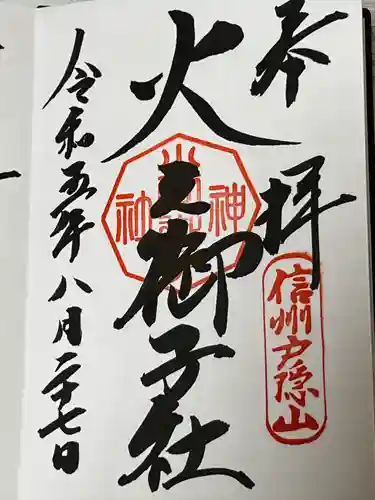 奉拝
信州戸隠山
火之御子社
令和五年八月二十七日